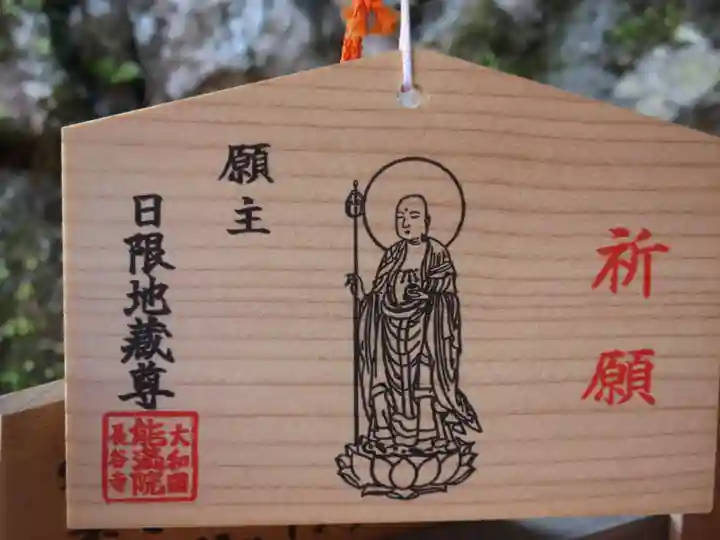 祈願
願主
日限地蔵尊
大和国
能満院
長谷寺